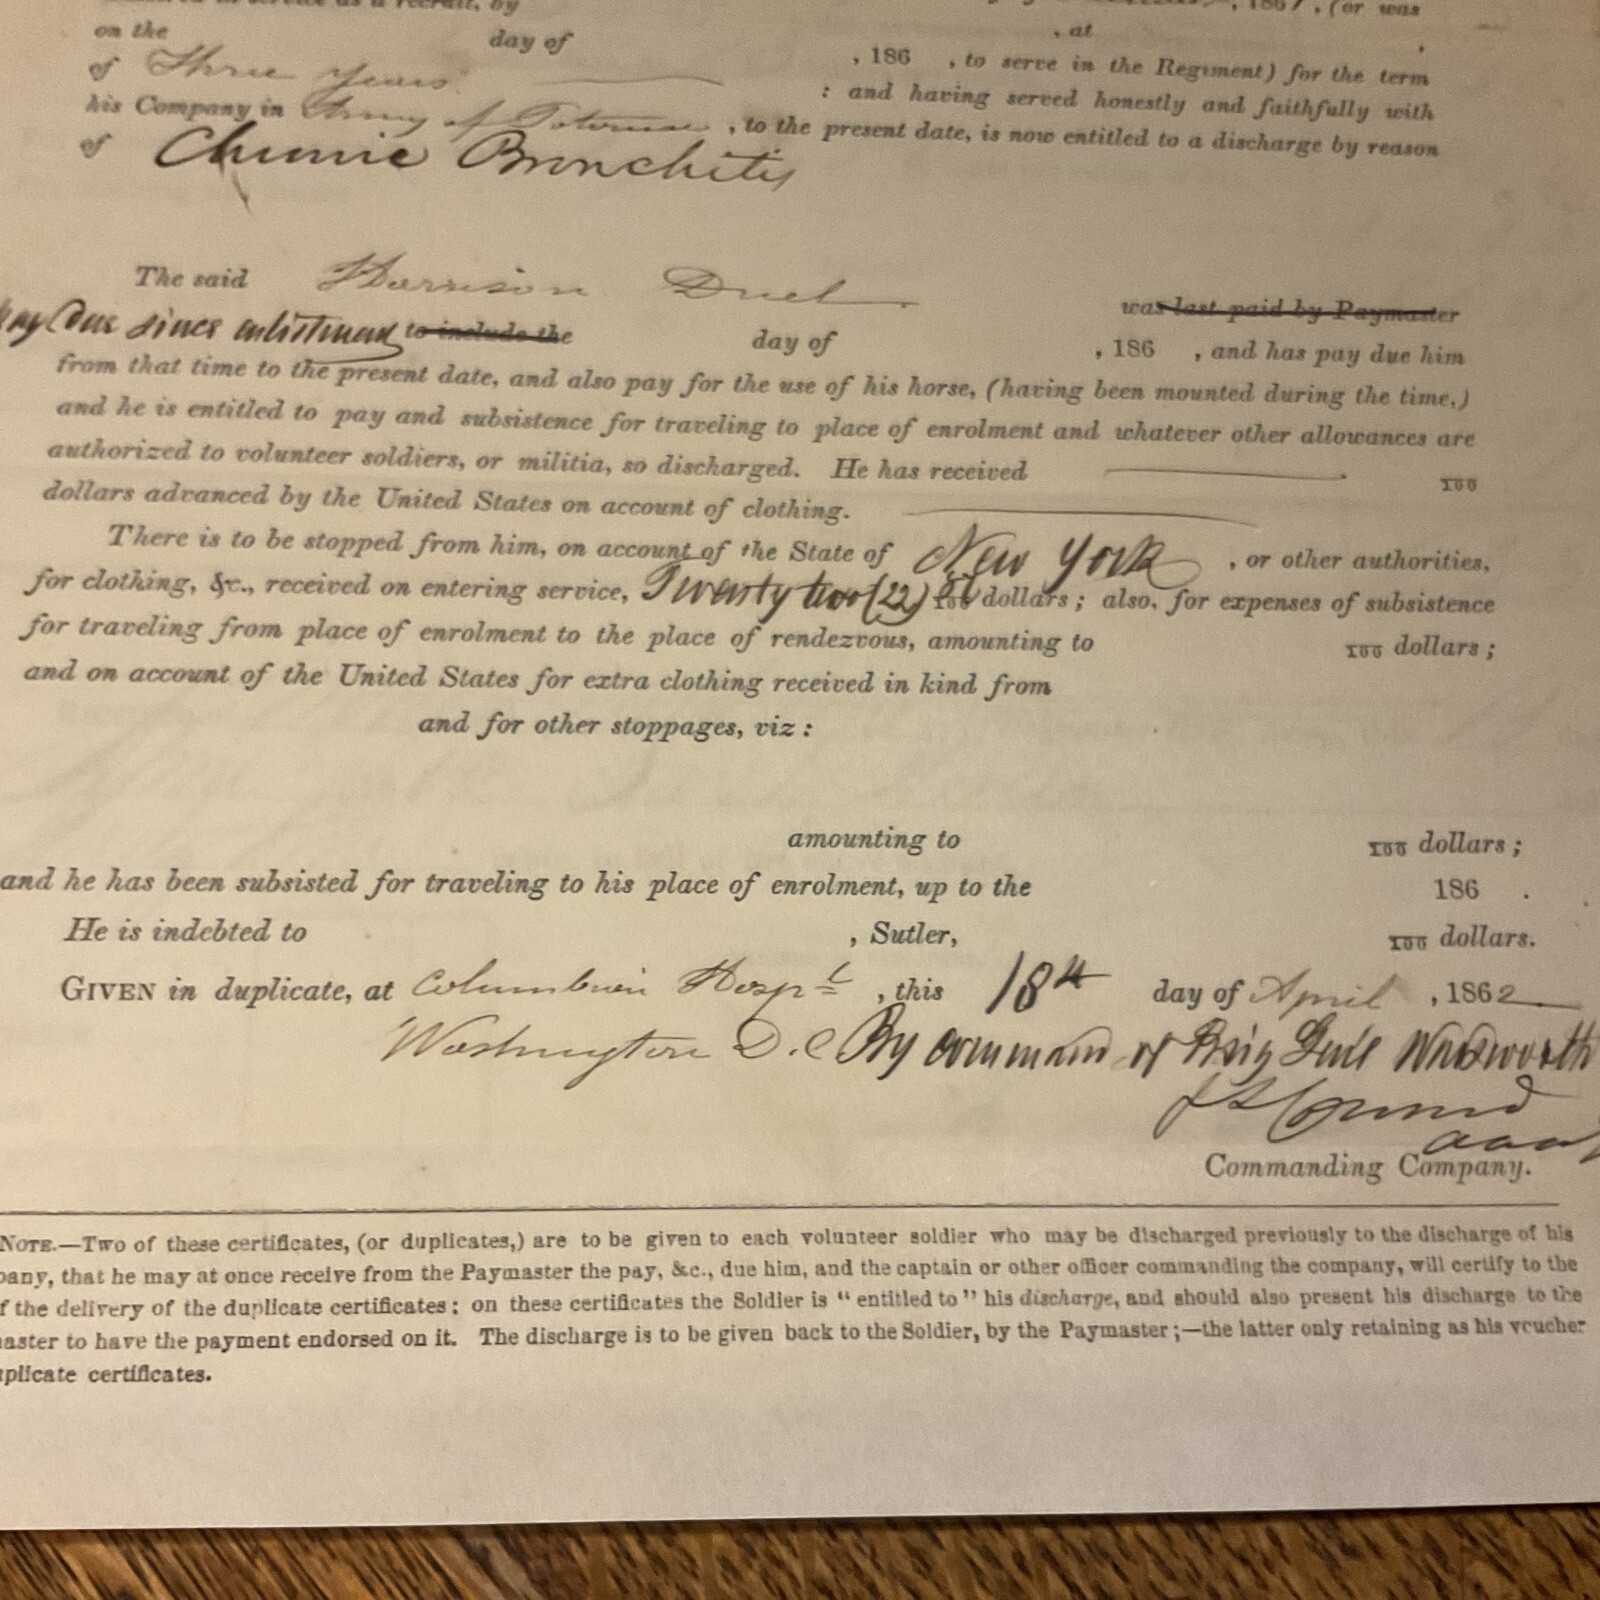 in service as a recruit, by , 186 , (or was
on the day of , at ,
of Three years , 186 , to serve in the Regiment) for the term
: and having served honestly and faithfully with
his Company in Army of Potomac , to the present date, is now entitled to a discharge by reason
of Chronic Bronchitis
The said Harrison Duel was last paid by Paymaster
pay due since enlistment to include the day of , 186 , and has pay due him
from that time to the present date, and also pay for the use of his horse, (having been mounted during the time,)
and he is entitled to pay and subsistence for traveling to place of enrolment and whatever other allowances are
authorized to volunteer soldiers, or militia, so discharged. He has received 100
dollars advanced by the United States on account of clothing.
There is to be stopped from him, on account of the State of New York , or other authorities,
for clothing, &c., received on entering service, Twenty two (22) 100 dollars; also, for expenses of subsistence
for traveling from place of enrolment to the place of rendezvous, amounting to 100 dollars;
and on account of the United States for extra clothing received in kind from
and for other stoppages, viz:
amounting to 100 dollars;
and he has been subsisted for traveling to his place of enrolment, up to the 186 .
He is indebted to , Sutler, 100 dollars.
GIVEN in duplicate, at Columbian Hospl , this 18th day of April , 1862
Washington D.C By command of Brig Genl Wadsworth
Commanding Company.
NOTE.—Two of these certificates, (or duplicates,) are to be given to each volunteer soldier who may be discharged previously to the discharge of his
pany, that he may at once receive from the Paymaster the pay, &c., due him, and the captain or other officer commanding the company, will certify to the
f the delivery of the duplicate certificates; on these certificates the Soldier is "entitled to" his discharge, and should also present his discharge to the
aster to have the payment endorsed on it. The discharge is to be given back to the Soldier, by the Paymaster;—the latter only retaining as his voucher
plicate certificates.